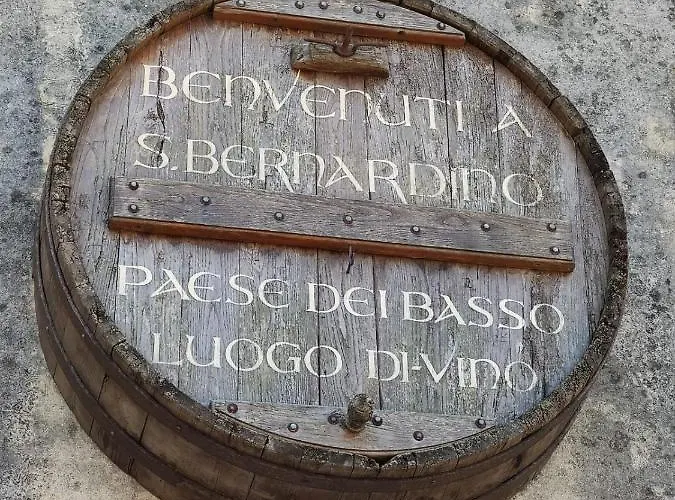 Benvenuti a
S. Bernardino
Paese dei Basso
Luogo di-vino